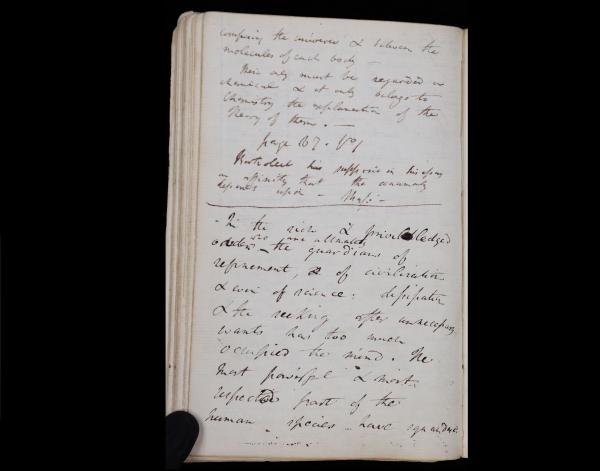 composing the universe & between the
molecules of each body —
These only must be regarded as
chemical & it only belongs to
Chemistry the explanation of the
theory of them. —
page 167.
Berthollet has supposed in his essay
on affinity that the
depends upon —
- In the rich & priviledged
orders who are the guardians of
refinement, & of civilization
& even of science; dissipation
& the seeking after unnecessary
wants has too much
occupied the mind. The
most powerful & most
respected part of the
human species have